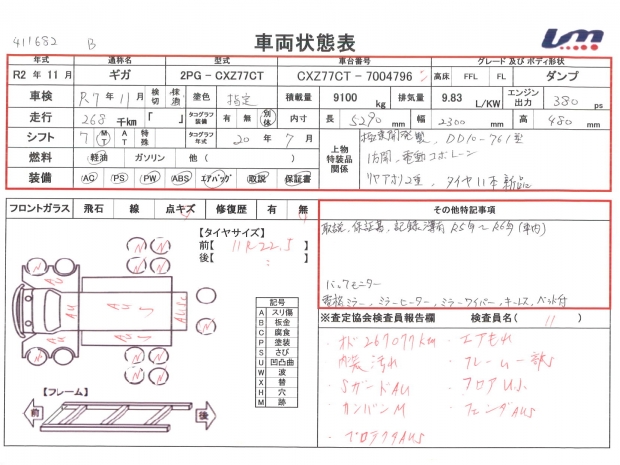 411682 B
車両状態表
年式 通称名 型式 車台番号 グレード 及び ボディ形状
R2 年 11 月 ギガ 2PG - CXZ77CT CXZ77CT - 7004796 高床 FFL FL ダンプ
車検 R7年11月 検切 抹消 塗色 指定 積載量 9100 kg 排気量 9.83 L/KW エンジン出力 380 ps
走行 268 千km 「 」 タコグラフ装備 有 無 別体 内寸 長 5290 mm 幅 2300 mm 高 480 mm
シフト 7 MT AT 特殊 タコグラフ年式 20 年 7 月 上物特装品関係 極東開発製、DD10-761型
燃料 軽油 ガソリン 他 ( ) 1方開、電動コボレーン
装備 AC PS PW ABS エアバッグ 取説 保証書 リヤアオリ2重、タイヤ11本新品
フロントガラス 飛石 線 点キズ 修復歴 有 無
その他特記事項
取説、保証書、記録簿有 R5年~R6年(車内)
バックモニター
電格ミラー、ミラーヒーター、ミラーワイパー、キーレス、ベッド付
【タイヤサイズ】
前【 11R22.5 】
後【 : 】
N N N N
AU AU
AU
AU
N N N N
記号
A スリ傷
B 板金
C 腐食
P 塗装
S さび
U 凹凸曲
W 波
X 替
H 穴
M 跡
【フレーム】
前 後
※査定協会検査員報告欄 検査員名( 11 )
・オド267077km ・エアもれ
・内装汚れ ・フレーム一部S
・SガードAU ・フロアU.S
・カンバンM ・フェンダAUS
・プロテクタAUS